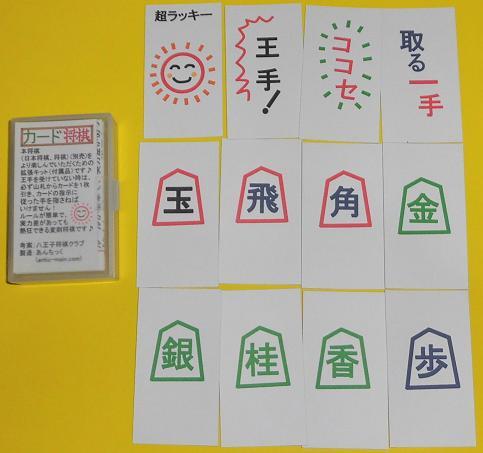 カード将棋
本将棋
(日本将棋、将棋)(別売)を
より楽しんでいただくための
拡張キット(付属品)です♪
王手を受けていない時は、
必ず山札からカードを1枚
引き、カードの指示に
従った手を指さねば
いけません!
ルールが簡単で、
実力差があっても
熱狂できる変則将棋です♪
考案:八王子将棋クラブ
製造:あんちっく
(antic-main.com)
超ラッキー
王手!
ココセ
取る一手
玉
飛
角
金
銀
桂
香
歩